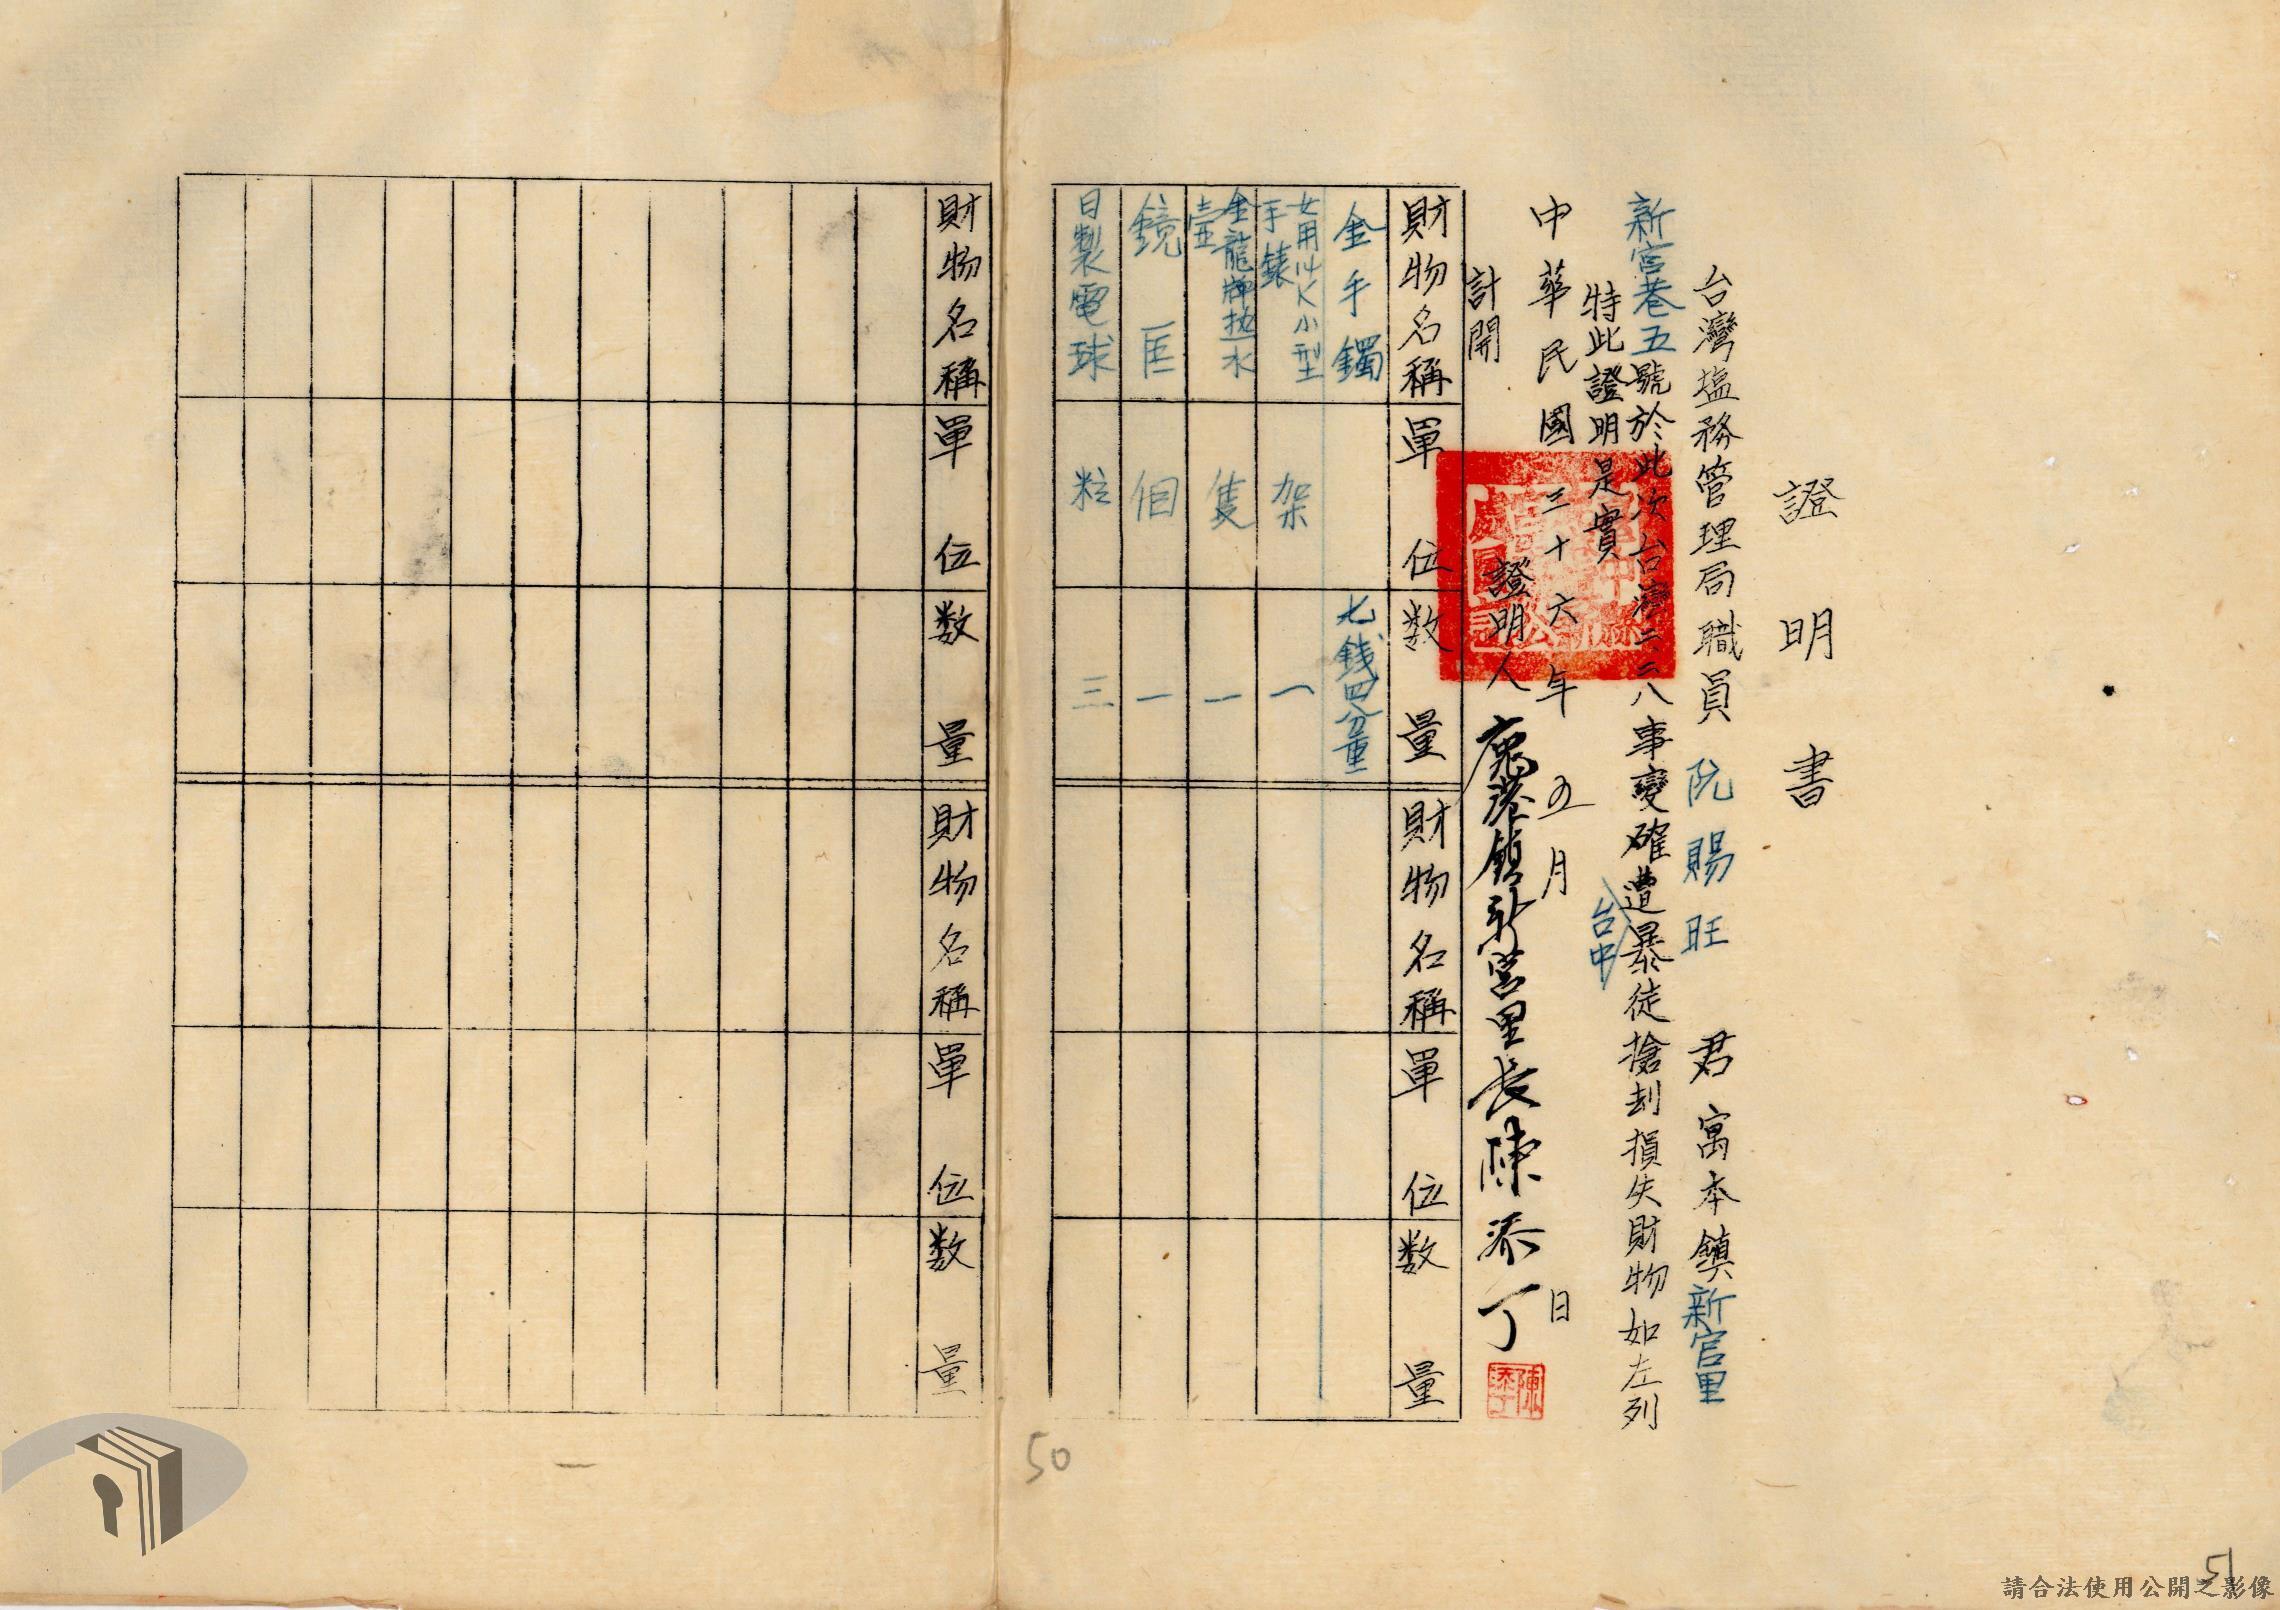 證明書
台灣塩務管理局職員 阮賜旺 君寓本鎮新宮里
新宮巷五號於此次台灣二二八事變確遭暴徒搶刦損失財物如左列
台中
特此證明是實
中華民國三十六年五月 日
證明人 鹿港鎮新宮里長陳添丁
陳添丁
計開
財物名稱 單位 数量 財物名稱 單位 数量
金手鐲 七錢四分重
女用14K小型手錶 架 一
金龍牌热水壼 隻 一
鏡匡 個 一
日製電球 粒 三
財物名稱 單位 数量 財物名稱 單位 数量
50
51
請合法使用公開之影像